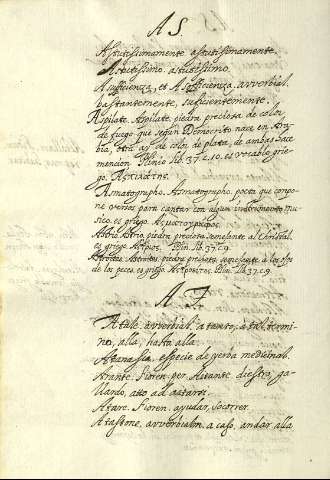 A S.
Astutissimamente astutissimamente.
Astutissimo. astutissimo.
A sufficienza, et A soffizienza, avverbial.
bastantemente, suficientemente.
Aspilate. Aspilate. piedra preciosa de color
de fuego que segun Democrito nace en Ara-
bia, otra ay de color de plata, de ambas hace
mencion Plinio lib. 37. c. 10. es vocablo grie-
go. Ασπιλάτης.
Asmatographo. Asmatographo. poeta que compo-
ne versos para cantar con algun instrumento mu-
sico. es griego.
Astrio. Astrio, piedra preciosa semejante al Cristal.
es griego. Ἄστριος. Plin. lib. 37. c. 9.
Astrotes. Astrotes, piedra preciosa semejante a los ojos
de los peces. es griego. Plin. lib. 37. c. 9.
A T.
A tale. avverbial. a tanto, a tal termi-
no, alla, hasta alla.
Atanasia, especie de yerba medicinal.
Atante. Fioren. per Aitante. diestro, ga-
llardo, atto ad aatarsi.
Atare. Fioren. ayudar, socorrer.
A tastone, avverbialm. a caso, andar alla